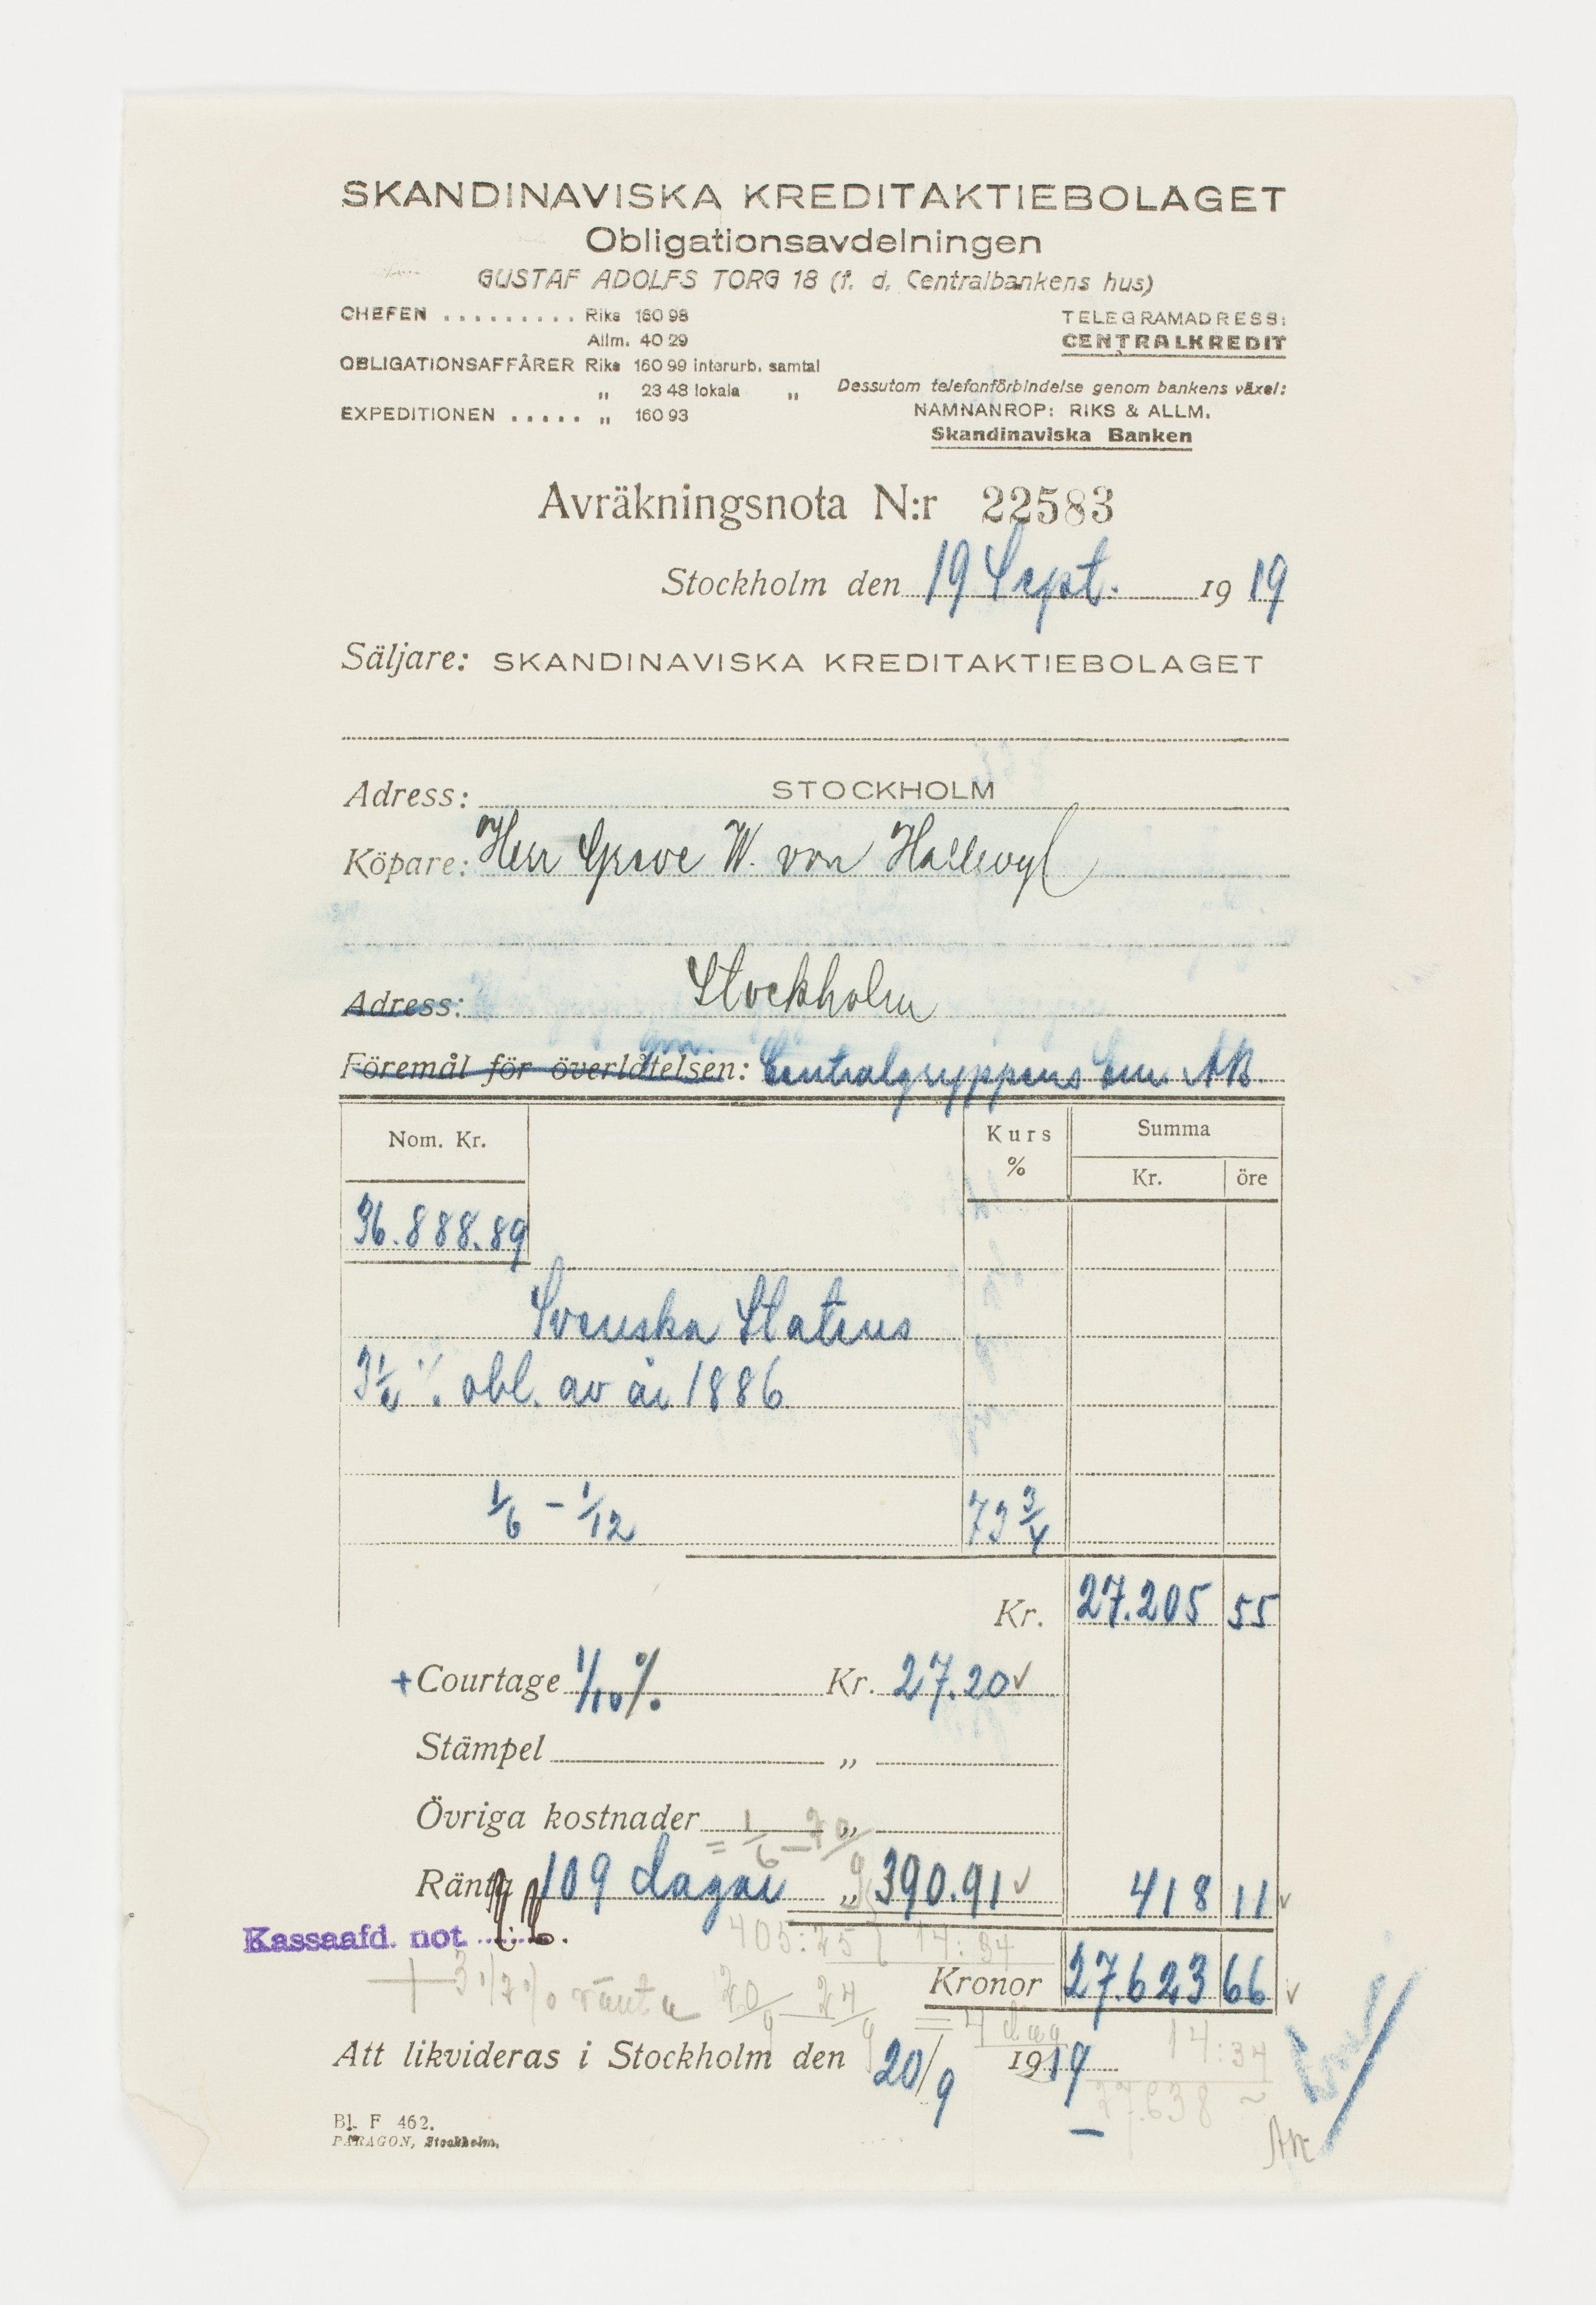 SKANDINAVISKA KREDITAKTIEBOLAGET
Obligationsavdelningen
GUSTAF ADOLFS TORG 18 (f. d. Centralbankens hus)
CHEFEN ......... Riks 160 98
Allm. 40 29
OBLIGATIONSAFFÄRER Riks 160 99 interurb. samtal
„ 23 48 lokala „
EXPEDITIONEN ..... „ 160 93
TELEGRAMADRESS:
CENTRALKREDIT
Dessutom telefonförbindelse genom bankens växel:
NAMNANROP: RIKS & ALLM.
Skandinaviska Banken
Avräkningsnota N:r 22583
Stockholm den 19 Sept. 1919
Säljare: SKANDINAVISKA KREDITAKTIEBOLAGET
Adress: STOCKHOLM
Köpare: Herr Greve W. von Hallwyl
Adress: Stockholm
gm.
Föremål för överlåtelsen: Centralgruppens Em. AB.
Nom. Kr. Kurs % Summa
Kr. öre
36.888.89
Svenska Statens
3½ % obl. av år 1886
1/6 - 1/12 73 3/4
Kr. 27.205 55
+ Courtage 1/10 % Kr. 27.20 ✓
Stämpel „
Övriga kostnader „
= 1/6 - 20/9
Ränta på 109 dagar „ 390.91 ✓ 418 11 ✓
Kassaafd. not
405:25 14:34
Kronor 27.623 66 ✓
+ 3 1/2 % ränta 20/9 - 24/9 = 4 dag 14:34
Att likvideras i Stockholm den 20/9 1919
27.638 ~
Bl. F 462.
PARAGON, Stockholm.